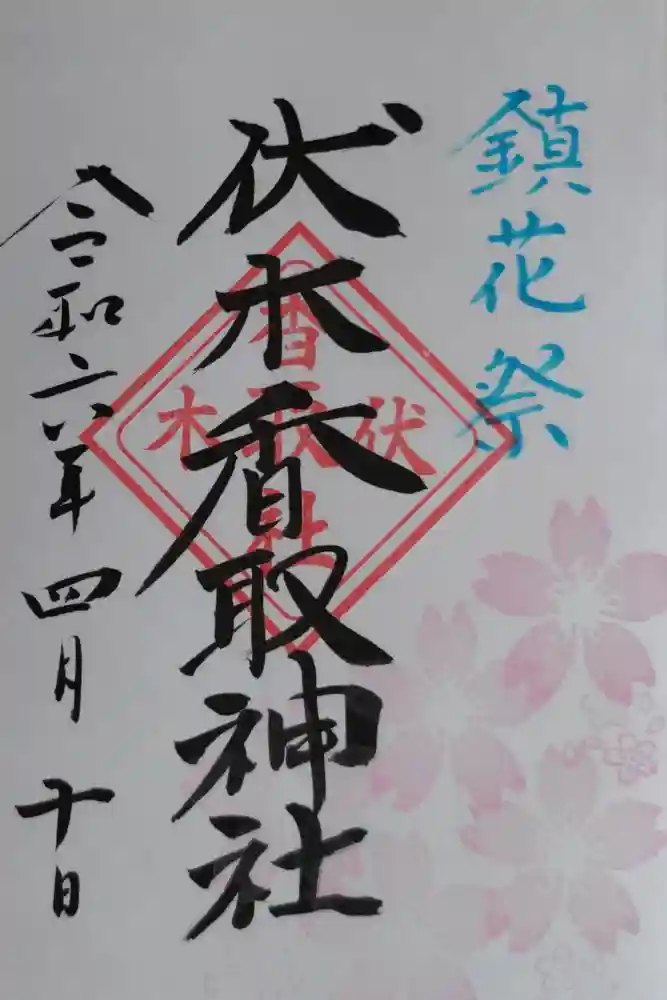 鎮花祭
伏木香取神社
香取社
伏木
令和六年四月十日